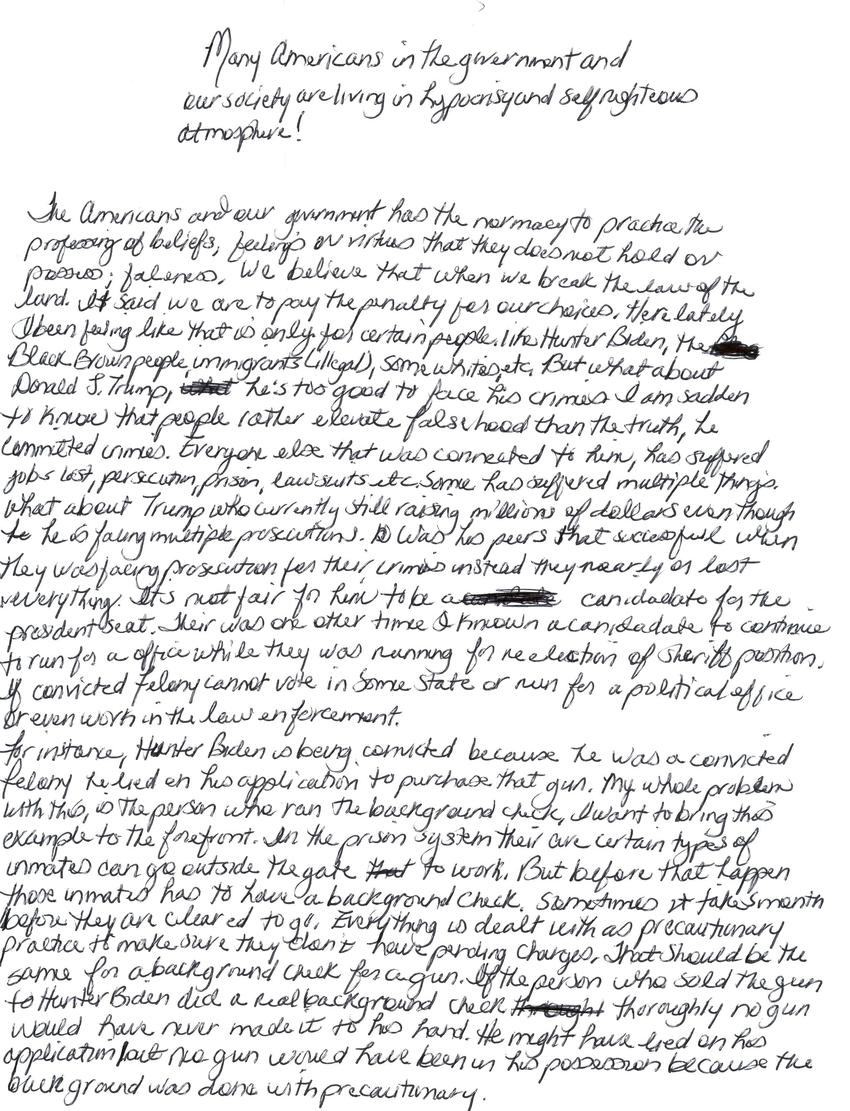 Many Americans in the government and
our society are living in hypocrisy and self righteous
atmosphere!
The Americans and our government has the normacy to practice the
professing of beliefs, feelings or virtues that they does not hold or
possess; falseness. We believe that when we break the law of the
land. It said we are to pay the penalty for our choices. Here lately
I been feeling like that is only for certain people. like Hunter Biden, the
Black Brown people, immigrants (illegal), some whites, etc. But what about
Donald J. Trump, he's too good to face his crimes I am sadden
to know that people rather elevate falsehood than the truth, he
committed crimes. Everyone else that was connected to him, has suffered
jobs lost, persecution, prison, lawsuits etc. Some has suffered multiple things.
What about Trump who currently still raising millions of dollars even though
to he is facing multiple prosecutions. Was his peers that successfull when
they was facing prosecution for their crimes instead they nearly or lost
everything. It's not fair for him to be a canidadate for the
president seat. Their was one other time I known a canidadate to continue
to run for a office while they was running for reelection of sheriff position.
If convicted felony cannot vote in some state or run for a political office
or even work in the law enforcement.
For instance, Hunter Biden is being convicted because he was a convicted
felony he lied on his application to purchase that gun. My whole problem
with this, is the person who ran the background check, I want to bring this
example to the forefront. In the prison system their are certain types of
inmates can go outside the gate to work. But before that happen
those inmates has to have a background check. Sometimes it takes month
before they are cleared to go. Everything is dealt with as precautionary
practice to make sure they don't have pending charges. That should be the
same for a background check for a gun. If the person who sold the gun
to Hunter Biden did a real background check thoroughly no gun
would have never made it to his hand. He might have lied on his
application but no gun would have been in his possession because the
background was done with precautionary.